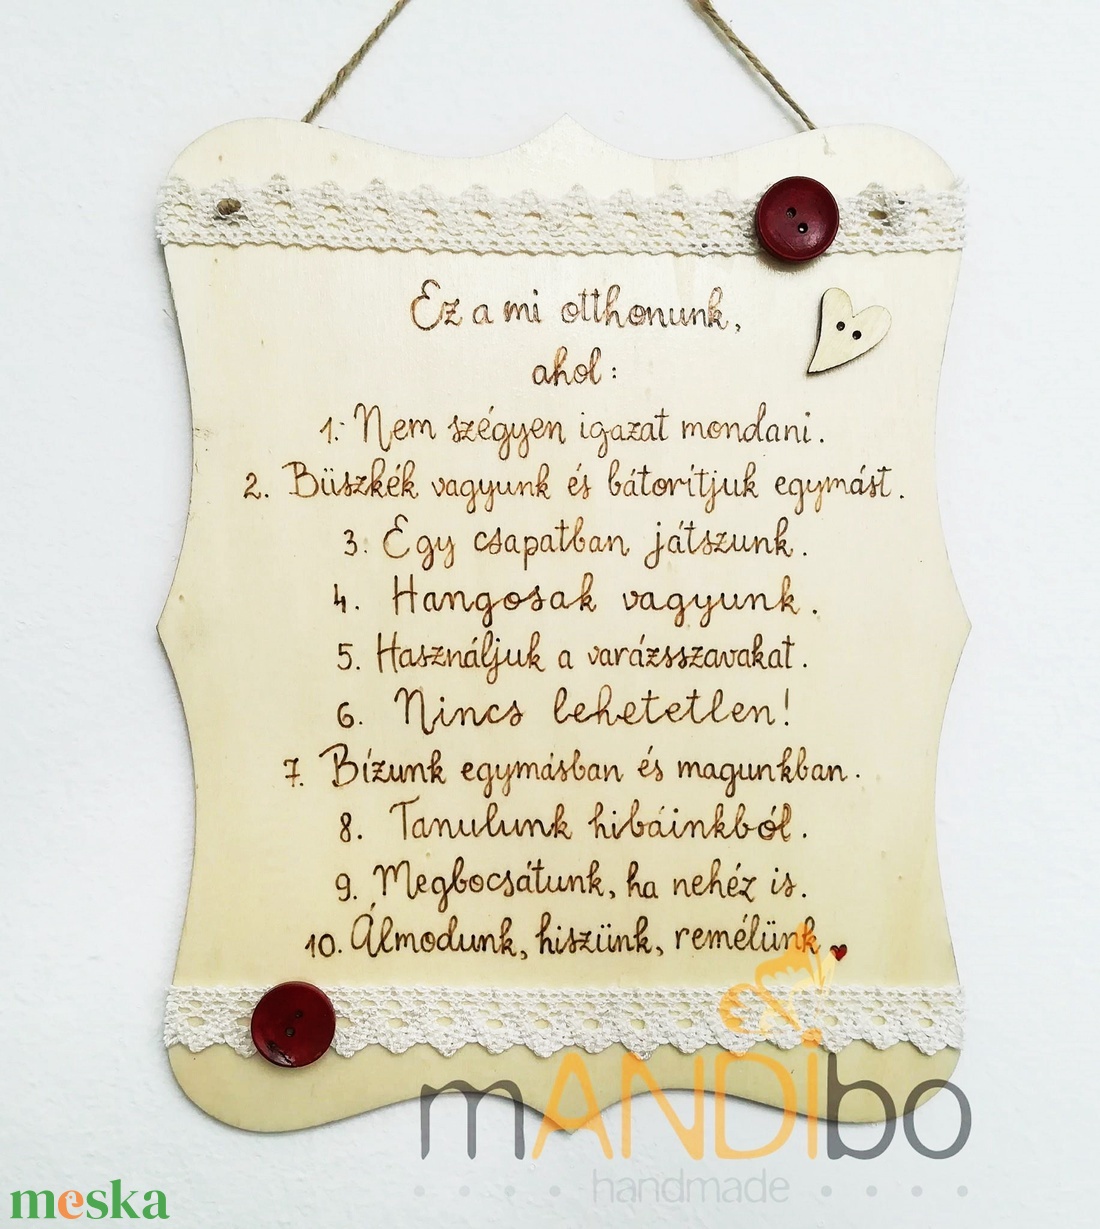 Ez a mi otthonunk,
ahol:
1. Nem szégyen igazat mondani.
2. Büszkék vagyunk és bátorítjuk egymást.
3. Egy csapatban játszunk.
4. Hangosak vagyunk.
5. Használjuk a varázsszavakat.
6. Nincs lehetetlen!
7. Bízunk egymásban és magunkban.
8. Tanulunk hibáinkból.
9. Megbocsátunk, ha nehéz is.
10. Álmodunk, hiszünk, remélünk
mANDibo
handmade
meska